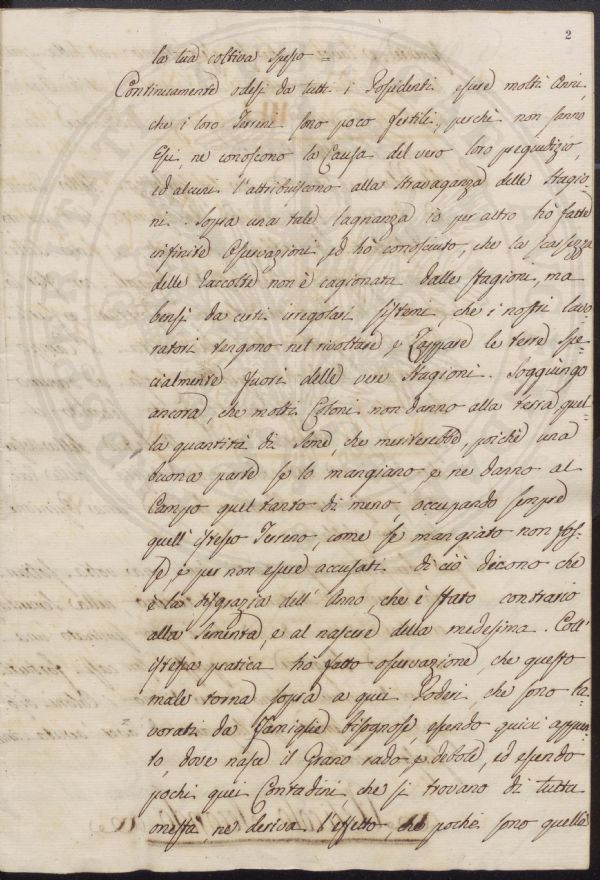 2
la tua coltiva spesso =
Continuamente odesi da tutti i Possidenti essere molti Anni,
che i loro Terreni sono poco fertili, perchè non sanno
Essi, ne conoscono la Causa del vero loro pregiudizio,
ed alcuni l'attribuiscono alla stravaganza delle Stagio-
ni. Sopra una tale lagnanza io per altro hò fatte
infinite Osservazioni, ed hò conosciuto, che la scarsezza
delle Raccolte non è cagionata dalle stagioni, ma
bensì da certi irregolari sistemi, che i nostri lavo
ratori tengono nel rivoltare, e Zappare le terre spe-
cialmente fuori delle vere Stagioni. Soggiungo
ancora, che molti Coloni non danno alla terra quel-
la quantità di Seme, che meriterebbe, poichè una
buona parte se lo mangiano, e ne danno al
Campo quel tanto di meno occupando sempre
quell'istesso Terreno, come se mangiato non fos-
se, e per non essere accusati di ciò dicono che
è la disgrazia dell'Anno, che è stato contrario
alla Sementa, e al nascere della medesima. Coll'
istessa pratica hò fatto osservazione, che questo
male torna sopra a quei Poderi, che sono la-
vorati da Famiglie bisognose essendo quivi appun-
to, dove nasce il Grano rado, e debole, ed essendo
pochi quei Contadini, che si trovano di tutta
onestà, ne deriva l'effetto, che pochi sono quelli